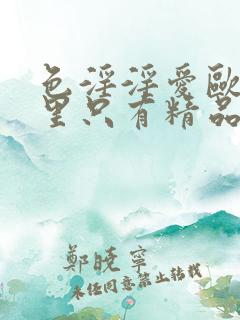 色淫淫爱歐
里只有精品
鄭曉寧
未经同意禁止转载